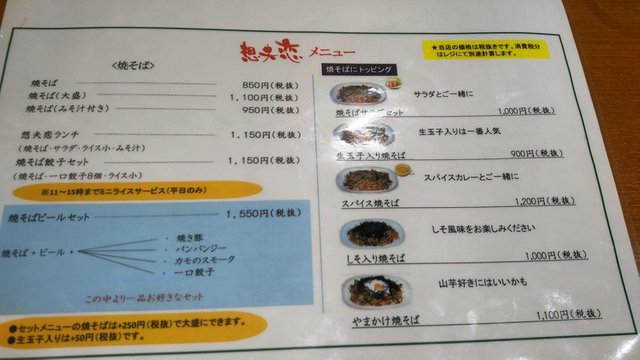 想夫恋 メニュー
★当店の価格は税抜きです。消費税分はレジにて別途計算します。
<焼そば>
焼そば 850円(税抜)
焼そば(大盛) 1,100円(税抜)
焼そば(みそ汁付き) 950円(税抜)
想夫恋ランチ 1,150円(税抜)
(焼そば・サラダ・ライス小・みそ汁)
焼そば餃子セット 1,150円(税抜)
(焼そば・一口餃子8個・ライス小)
※11～15時までミニライスサービス(平日のみ)
焼そばビールセット 1,550円(税抜)
焼そば + ビール +
・ 焼き豚
・ バンバンジー
・ カモのスモーク
・ 一口餃子
この中より一品お好きなセット
●セットメニューの焼そばは+250円(税抜)で大盛にできます。
●生玉子入りは+50円(税抜)です。
焼そばにトッピング
サラダとご一緒に
焼そばサラダセット 1,000円(税抜)
生玉子入りは一番人気
生玉子入り焼そば 900円(税抜)
スパイスカレーとご一緒に
スパイス焼そば 1,200円(税抜)
しそ風味をお楽しみください
しそ入り焼そば 1,000円(税抜)
山芋好きにはいいかも
やまかけ焼そば 1,100円(税抜)